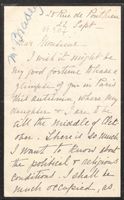 22 Sept
Dear
I wish it might be
my good fortune to have a
glimpse of you in Paris
this autumn, where my
daughter & I are
till the middle of Oct
ober. There is so much
I want to know about
the political & religious
conditions. I shall be
much occupied, as